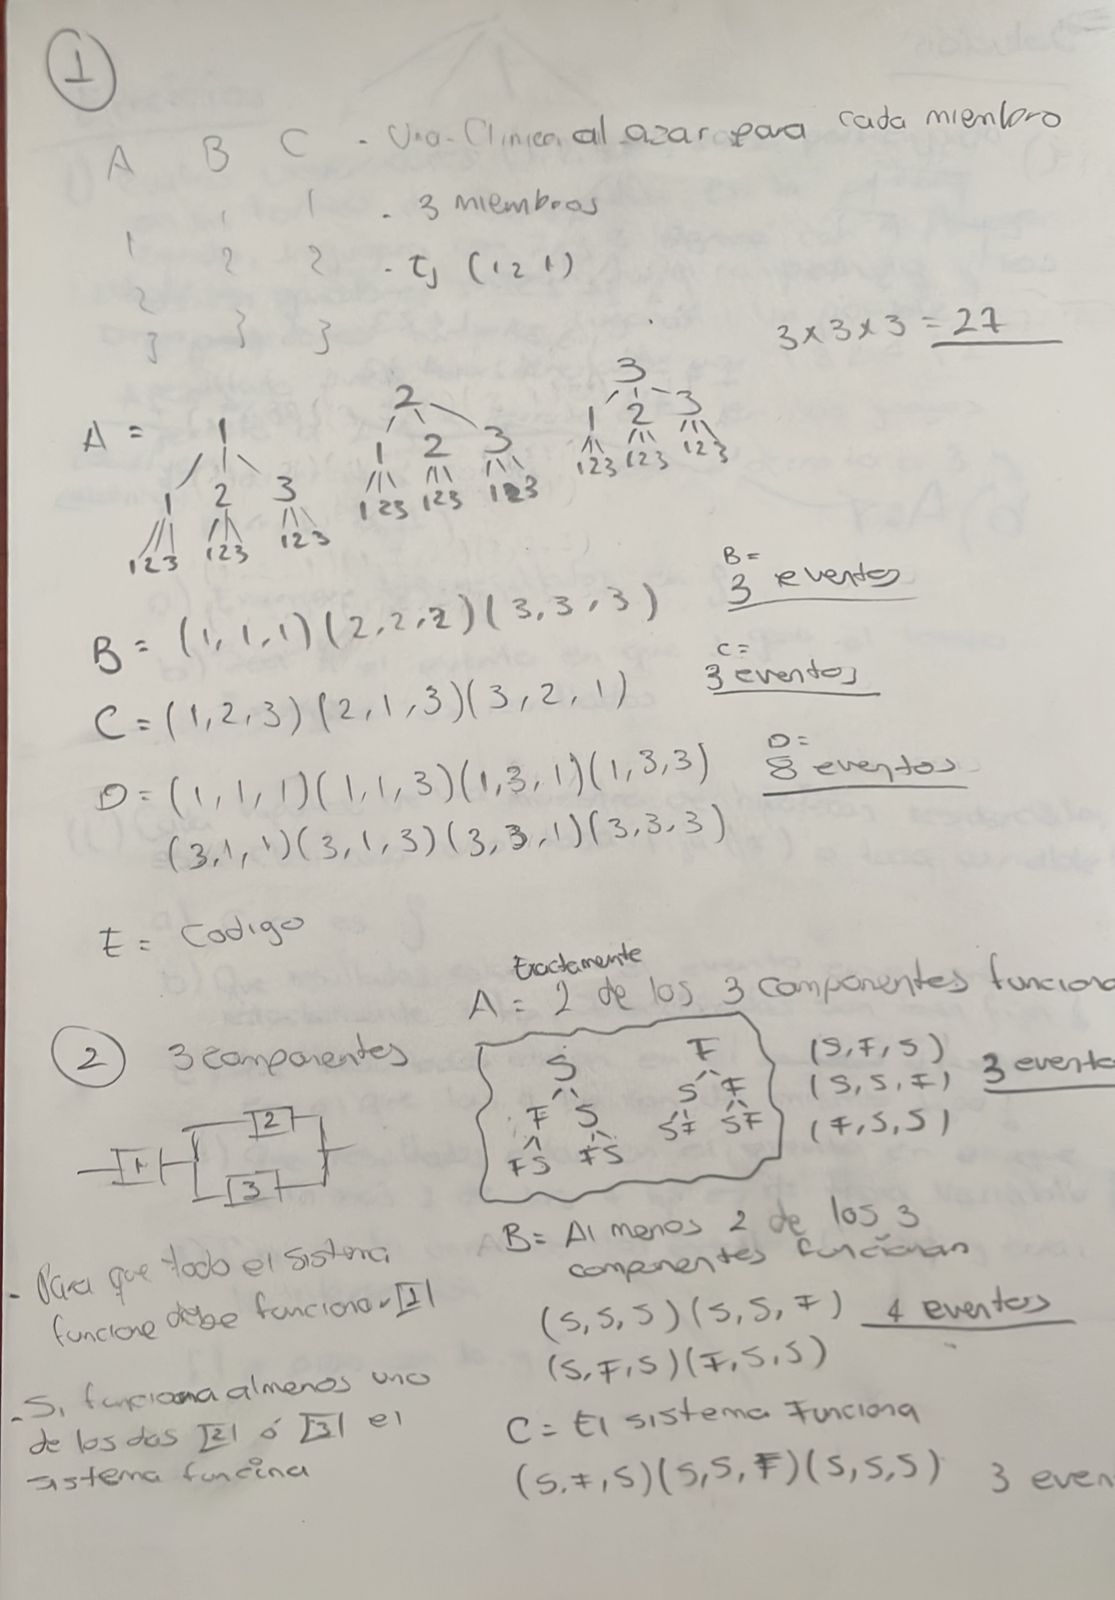 1
A B C - Una Clínica al azar para cada miembro
1 1 - 3 miembros
1 2 2 - Ej (1 2 1)
2 3 3
3
3 x 3 x 3 = 27
A = 1 2 3
1 2 3 1 2 3 1 2 3
123 123 123 123 123 123 123 123 123
B = (1, 1, 1) (2, 2, 2) (3, 3, 3) B = 3 eventos
C = (1, 2, 3) (2, 1, 3) (3, 2, 1) C = 3 eventos
D = (1, 1, 1) (1, 1, 3) (1, 3, 1) (1, 3, 3) D = 8 eventos
(3, 1, 1) (3, 1, 3) (3, 3, 1) (3, 3, 3)
E = Codigo
2 3 componentes
1 2 3
- Para que todo el sistema
funcione debe funcionar 1
- Si funciona almenos uno
de los dos 2 ó 3 el
sistema funcina
Exactamente
A = 2 de los 3 componentes funciona
S F
F S S F
F S F S S F S F
(S, F, S)
(S, S, F) 3 evento
(F, S, S)
B = Al menos 2 de los 3
componentes funcionan
(S, S, S) (S, S, F) 4 eventos
(S, F, S) (F, S, S)
C = El sistema Funciona
(S, F, S) (S, S, F) (S, S, S) 3 even